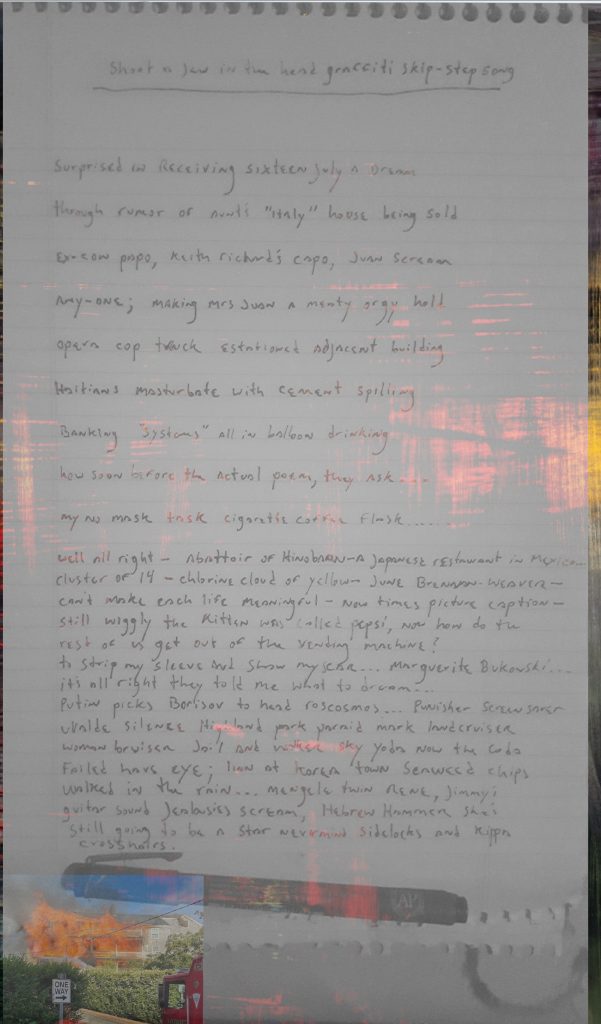 Shoot a Jew in the head graffiti skip-step song
Surprised in Receiving sixteen July a Dream
through rumor of aunt's "Italy" house being sold
Ex-con popo, Keith richard's capo, Juan Scream
Any-one; making Mrs Juan a menty orgy hold
opera cop truck estationed adjacent building
Haitians masturbate with cement spilling
Banking "systems" all in balloon drinking
how soon before the actual poem, they ask....
my no mask task cigarette coffee flask......
well all right - Abattoir of Hinobaan - a Japanese restaurant in Mexico
cluster of 14 - chlorine cloud of yellow - June Brennan-Weaver -
can't make each life meaningful - now times picture caption -
still wiggly the Kitten was called pepsi, now how do the
rest of us get out of the vending machine?
to strip my sleeve and show my scar... Marguerite Bukowski...
it's all right they told me what to dream...
Putin picks Borisov to head roscosmos... Punisher Screwsaver
uvalde silence Highland park parade mark landcruiser
woman bruiser Jail and walker sky yoda now the coda
Failed have eye; lion at Korea town seaweed chips
walked in the rain... mengele twin Rene, Jimmy's
guitar sound Jealousies scream, Hebrew Hammer she's
still going to be a star nevermind sidelocks and kippa
crosshairs.
AP
ONE
WAY